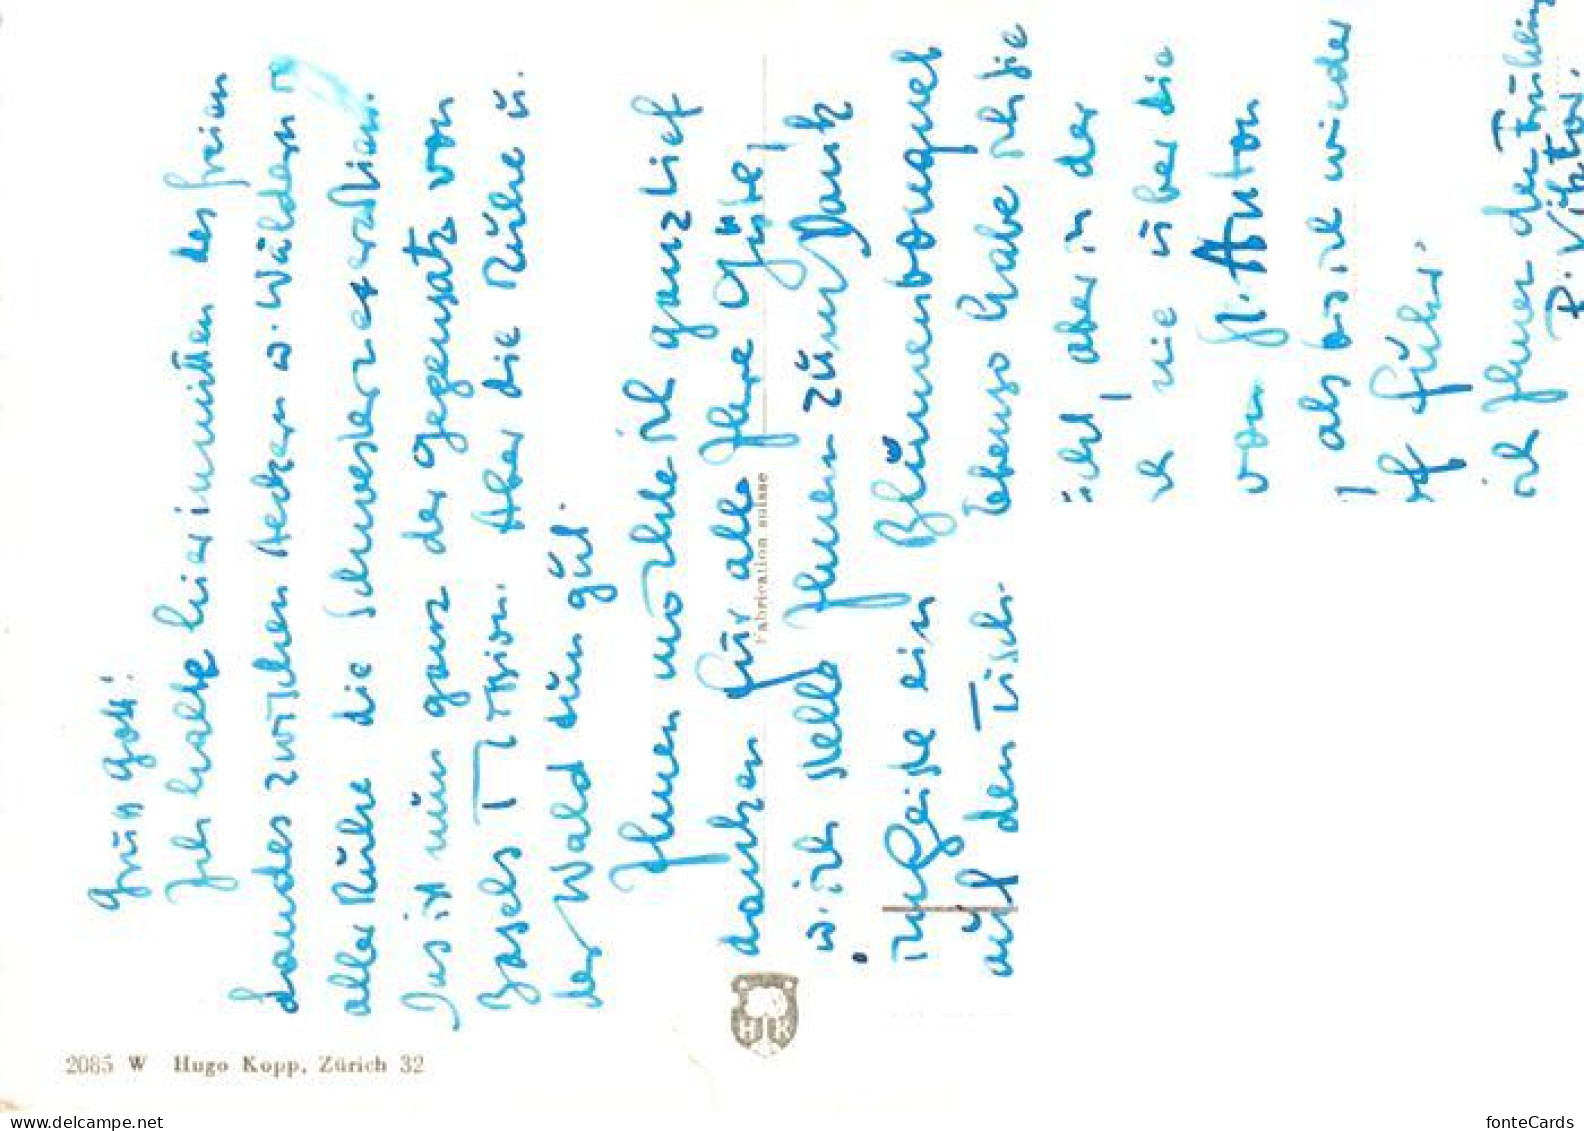 Grüß Gott!
Ich halte hier inmitten des freien
Landes zwischen Aeckern u. Wäldern in
aller Ruhe die Schwesternexerzitien.
Das ist nun ganz der Gegensatz von
Basels Mission. Aber die Ruhe u.
der Wald tun gut.
Ihnen möchte ich ganz tief
danken für alle Ihre Güte,
u. ich stelle Ihnen zum Dank
im Geiste ein Blumenbouquet
auf den Tisch. Ebenso habe ich Sie
aber in der
nie über die
von St. Anton
als bis ich wieder
früher.
ich Ihnen der Frühling
P. Viktor.
Fabrication suisse
HK
2085 W Hugo Kopp, Zürich 32
www.delcampe.net
fonteCards